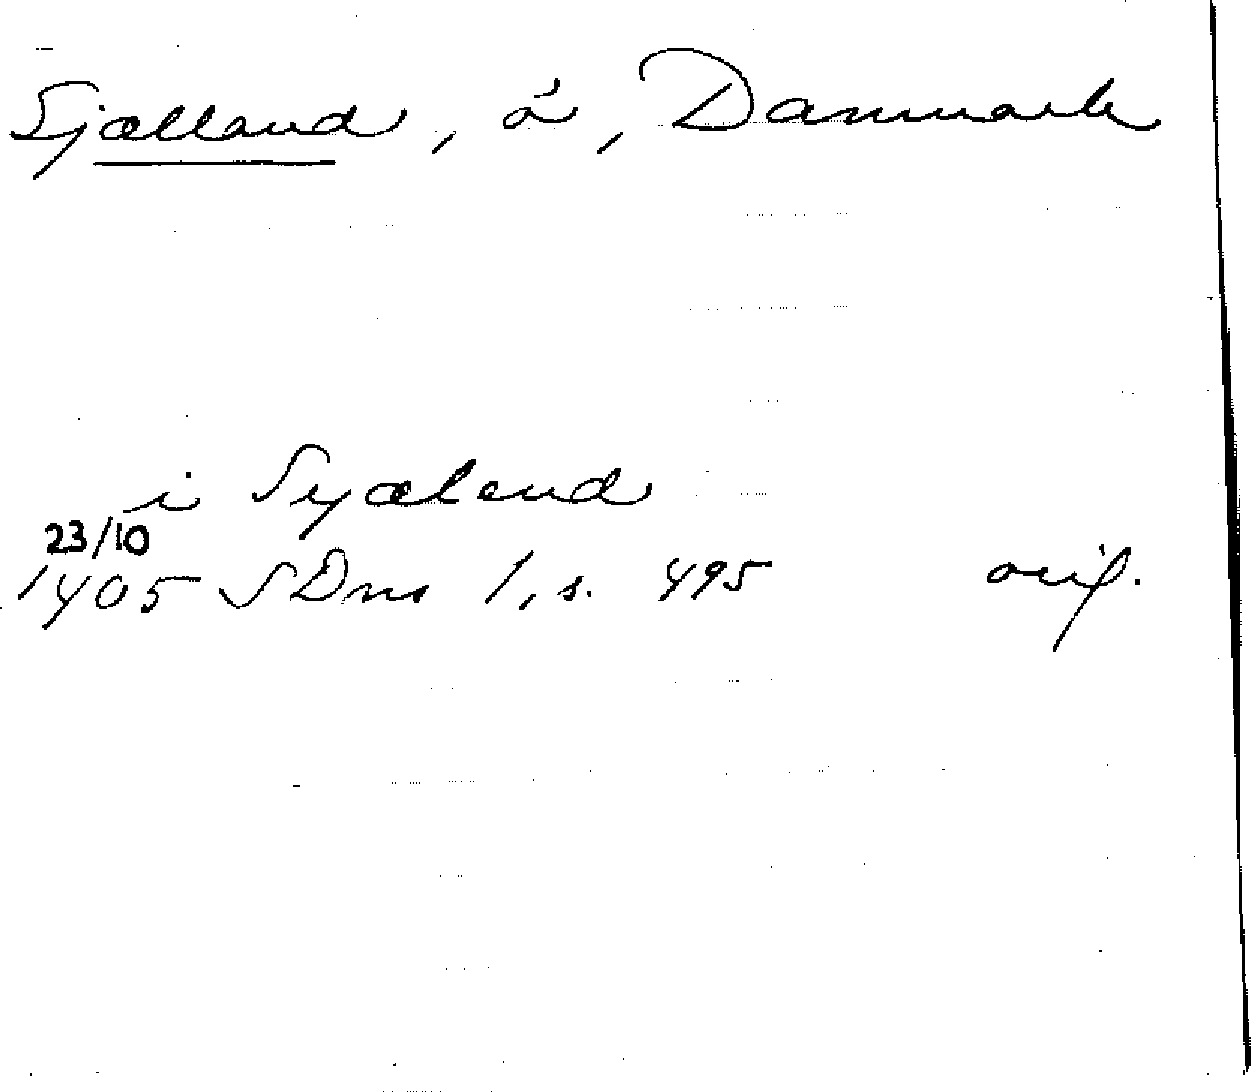 Sjælland, ö, Danmark
i Syæland
23/10
1405 SDns 1, s. 495 orig.